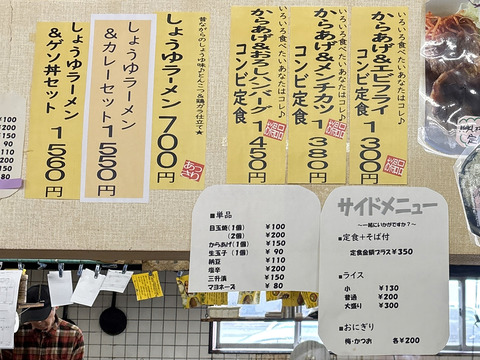 いろいろ食べたいあなたはコレ♪
からあげ&エビフライ
コンビ定食
1300円
いろいろ食べたいあなたはコレ♪
からあげ&メンチカツ
コンビ定食
1380円
いろいろ食べたいあなたはコレ♪
からあげ&おろしハンバーグ
コンビ定食
1450円
昔ながらのしょうゆ味♪とんこつ&鶏ガラ仕立て★
しょうゆラーメン
700円
あっさり
しょうゆラーメン
&カレーセット
1550円
しょうゆラーメン
&ゲソ丼セット
1560円
¥100
¥200
¥150
¥ 90
¥110
¥200
¥150
¥ 80
■単品
目玉焼(1個) ¥100
(2個) ¥200
からあげ(1個) ¥150
生玉子(1個) ¥ 90
納豆 ¥110
塩辛 ¥200
三升漬 ¥150
マヨネーズ ¥ 80
サイドメニュー
〜一緒にいかがですか?〜
■定食+そば付
定食金額プラス¥350
■ライス
小 ¥130
普通 ¥200
大盛り ¥300
■おにぎり
梅・かつお 各¥200